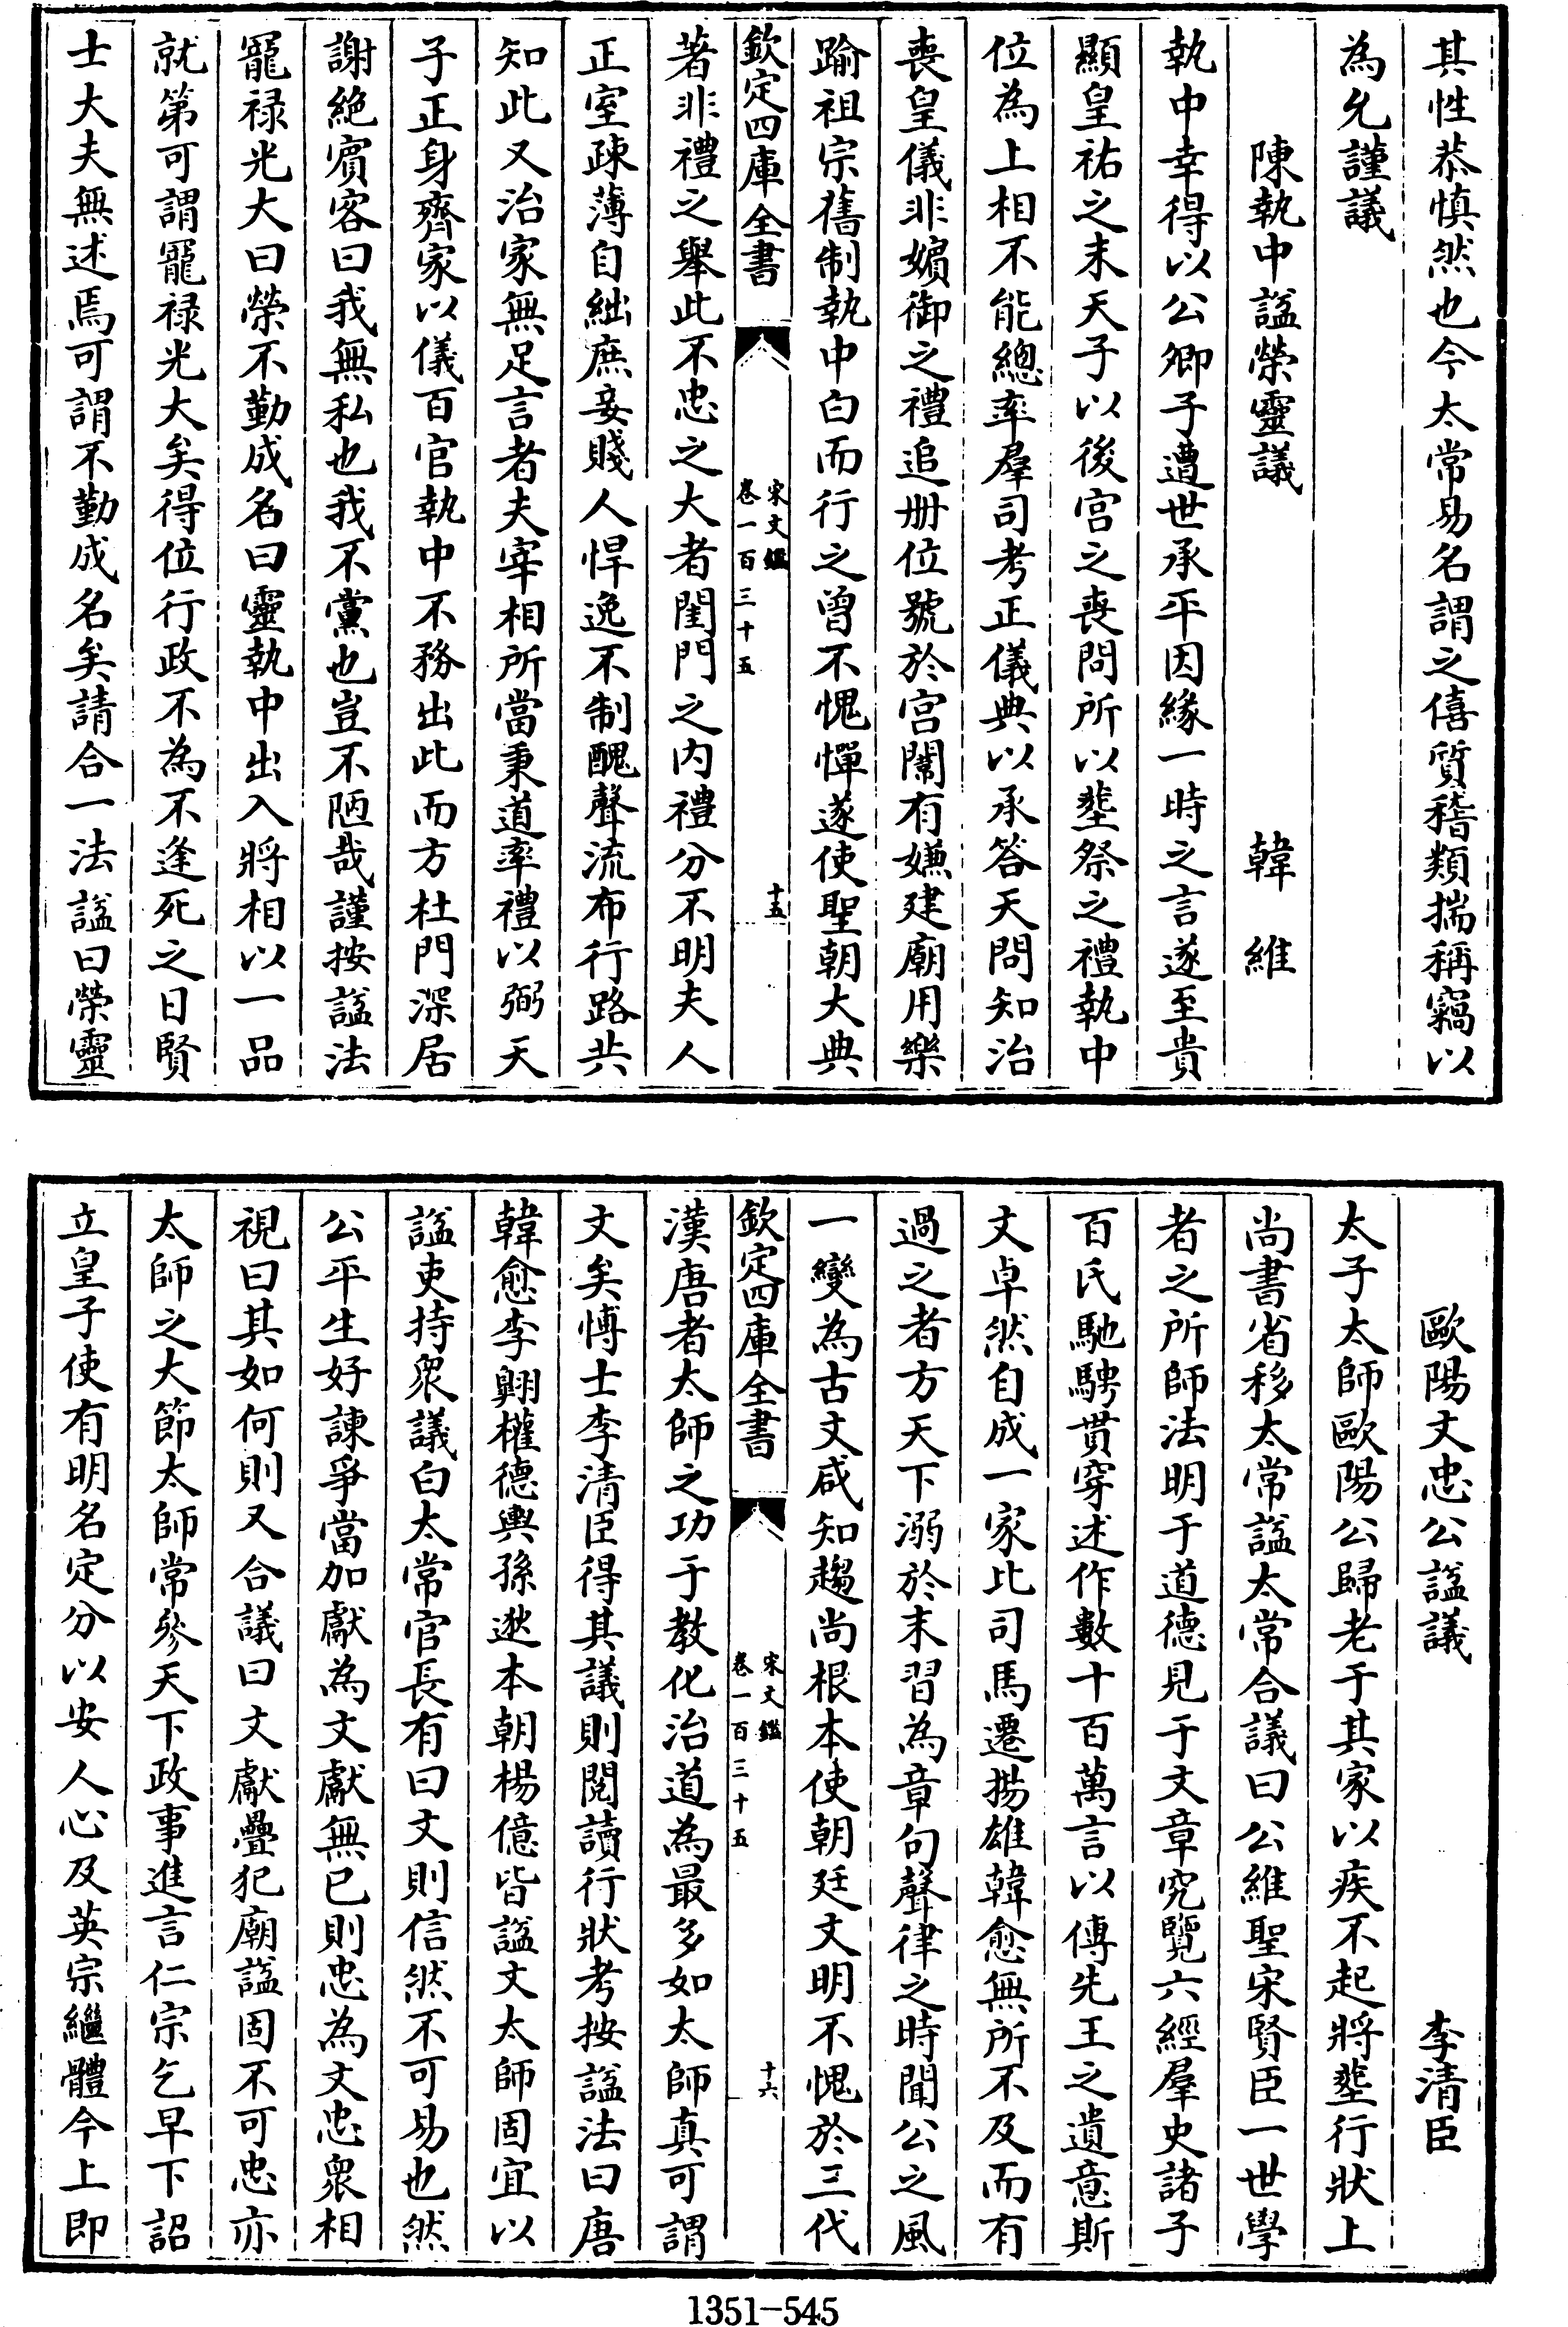 其性恭慎然也今太常易名謂之僖質稽類揣稱竊以
為允謹議
陳執中諡榮靈議 韓維
執中幸得以公卿子遭世承平因緣一時之言遂至貴
顯皇祐之末天子以後宮之喪問所以塟祭之禮執中
位為上相不能總率羣司考正儀典以承答天問知治
喪皇儀非嬪御之禮追册位號於宮闈有嫌建廟用樂
踰祖宗舊制執中白而行之曾不愧憚遂使聖朝大典
欽定四庫全書 宋文鑑 卷一百三十五 十五
著非禮之舉此不忠之大者閨門之內禮分不明夫人
正室疎薄自絀庶妾賤人悍逸不制醜聲流布行路共
知此又治家無足言者夫宰相所當秉道率禮以弼天
子正身齊家以儀百官執中不務出此而方杜門深居
謝絶賔客曰我無私也我不黨也豈不陋哉謹按諡法
寵禄光大曰榮不勤成名曰靈執中出入將相以一品
就第可謂寵禄光大矣得位行政不為不逢死之日賢
士大夫無述焉可謂不勤成名矣請合一法諡曰榮靈
歐陽文忠公諡議 李清臣
太子太師歐陽公歸老于其家以疾不起將塟行狀上
尚書省移太常諡太常合議曰公維聖宋賢臣一世學
者之所師法明于道德見于文章究覽六經羣史諸子
百氏馳騁貫穿述作數十百萬言以傳先王之遺意斯
文卓然自成一家比司馬遷揚雄韓愈無所不及而有
過之者方天下溺於末習為章句聲律之時聞公之風
一變為古文咸知趨尚根本使朝廷文明不愧於三代
欽定四庫全書 宋文鑑 卷一百三十五 十六
漢唐者太師之功于教化治道為最多如太師真可謂
文矣博士李清臣得其議則閱讀行狀考按諡法曰唐
韓愈李翺權德輿孫逖本朝楊億皆諡文太師固宜以
諡吏持衆議白太常官長有曰文則信然不可易也然
公平生好諫爭當加獻為文獻無已則忠為文忠衆相
視曰其如何則又合議曰文獻疊犯廟諡固不可忠亦
太師之大節太師常參天下政事進言仁宗乞早下詔
立皇子使有明名定分以安人心及英宗繼體今上即
1351-545